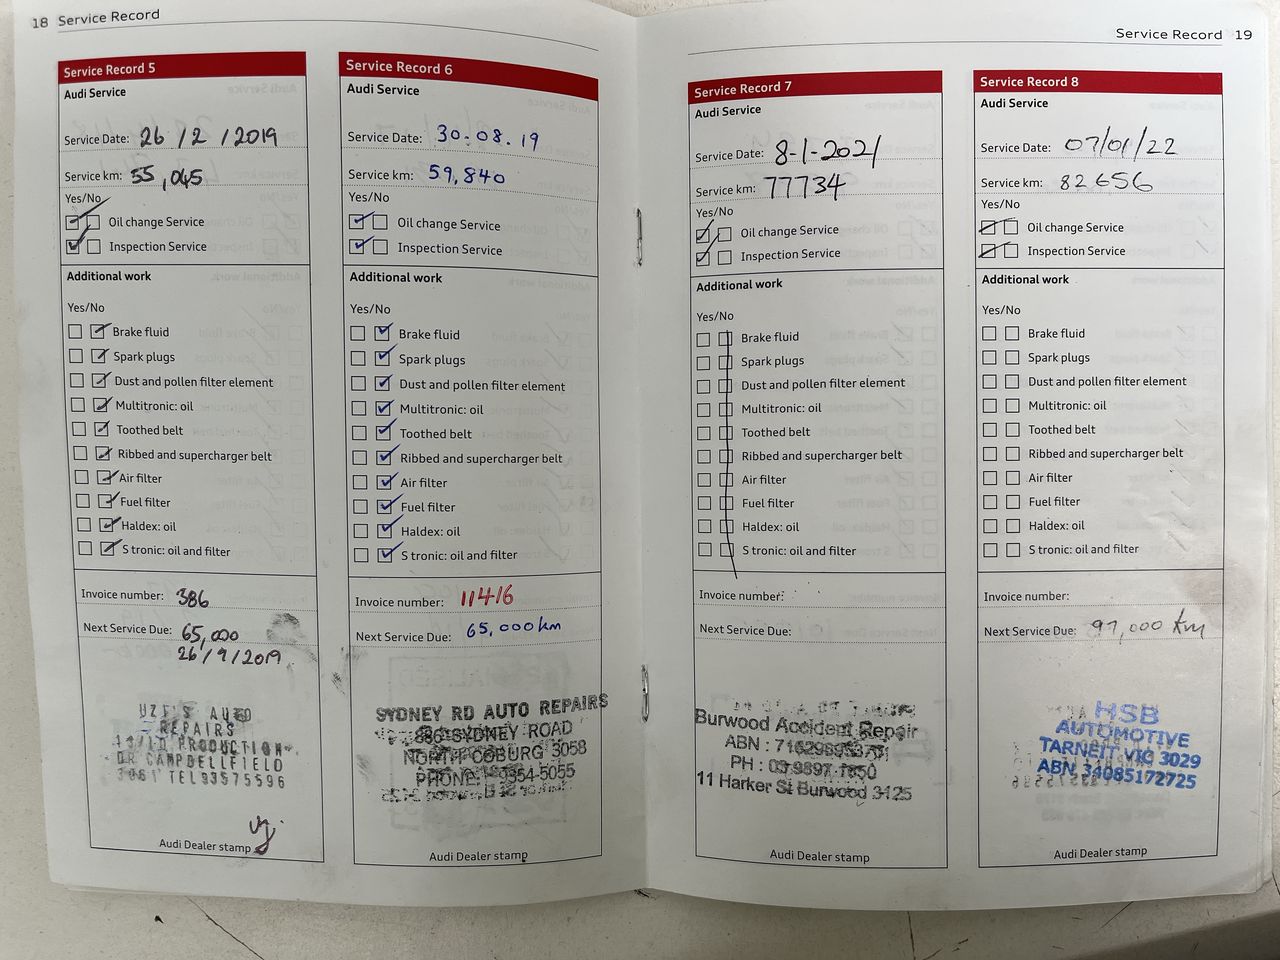 18 Service Record
Service Record 5
Audi Service
Service Date: 26/2/2019
Service km: 55,045
Yes/No
Oil change Service
Inspection Service
Additional work
Yes/No
Brake fluid
Spark plugs
Dust and pollen filter element
Multitronic: oil
Toothed belt
Ribbed and supercharger belt
Air filter
Fuel filter
Haldex: oil
S tronic: oil and filter
Invoice number: 386
Next Service Due: 65,000
26/9/2019
UZI'S AUTO
REPAIRS
PRODUCTION
DR CAMPBELLFIELD
3061 TEL 93575596
Audi Dealer stamp
Service Record 6
Audi Service
Service Date: 30.08.19
Service km: 59,840
Yes/No
Oil change Service
Inspection Service
Additional work
Yes/No
Brake fluid
Spark plugs
Dust and pollen filter element
Multitronic: oil
Toothed belt
Ribbed and supercharger belt
Air filter
Fuel filter
Haldex: oil
S tronic: oil and filter
Invoice number: 11416
Next Service Due: 65,000km
SYDNEY RD AUTO REPAIRS
SYDNEY ROAD
NORTH COBURG 3058
PHONE: 9354-5055
Audi Dealer stamp
Service Record 19
Service Record 7
Audi Service
Service Date: 8-1-2021
Service km: 77734
Yes/No
Oil change Service
Inspection Service
Additional work
Yes/No
Brake fluid
Spark plugs
Dust and pollen filter element
Multitronic: oil
Toothed belt
Ribbed and supercharger belt
Air filter
Fuel filter
Haldex: oil
S tronic: oil and filter
Invoice number:
Next Service Due:
Burwood Accident Repair
ABN :
PH :
11 Harker St Burwood 3125
Audi Dealer stamp
Service Record 8
Audi Service
Service Date: 07/01/22
Service km: 82656
Yes/No
Oil change Service
Inspection Service
Additional work
Yes/No
Brake fluid
Spark plugs
Dust and pollen filter element
Multitronic: oil
Toothed belt
Ribbed and supercharger belt
Air filter
Fuel filter
Haldex: oil
S tronic: oil and filter
Invoice number:
Next Service Due: 97,000 km
HSB
AUTOMOTIVE
TARNEIT VIC 3029
ABN 34085172725
Audi Dealer stamp